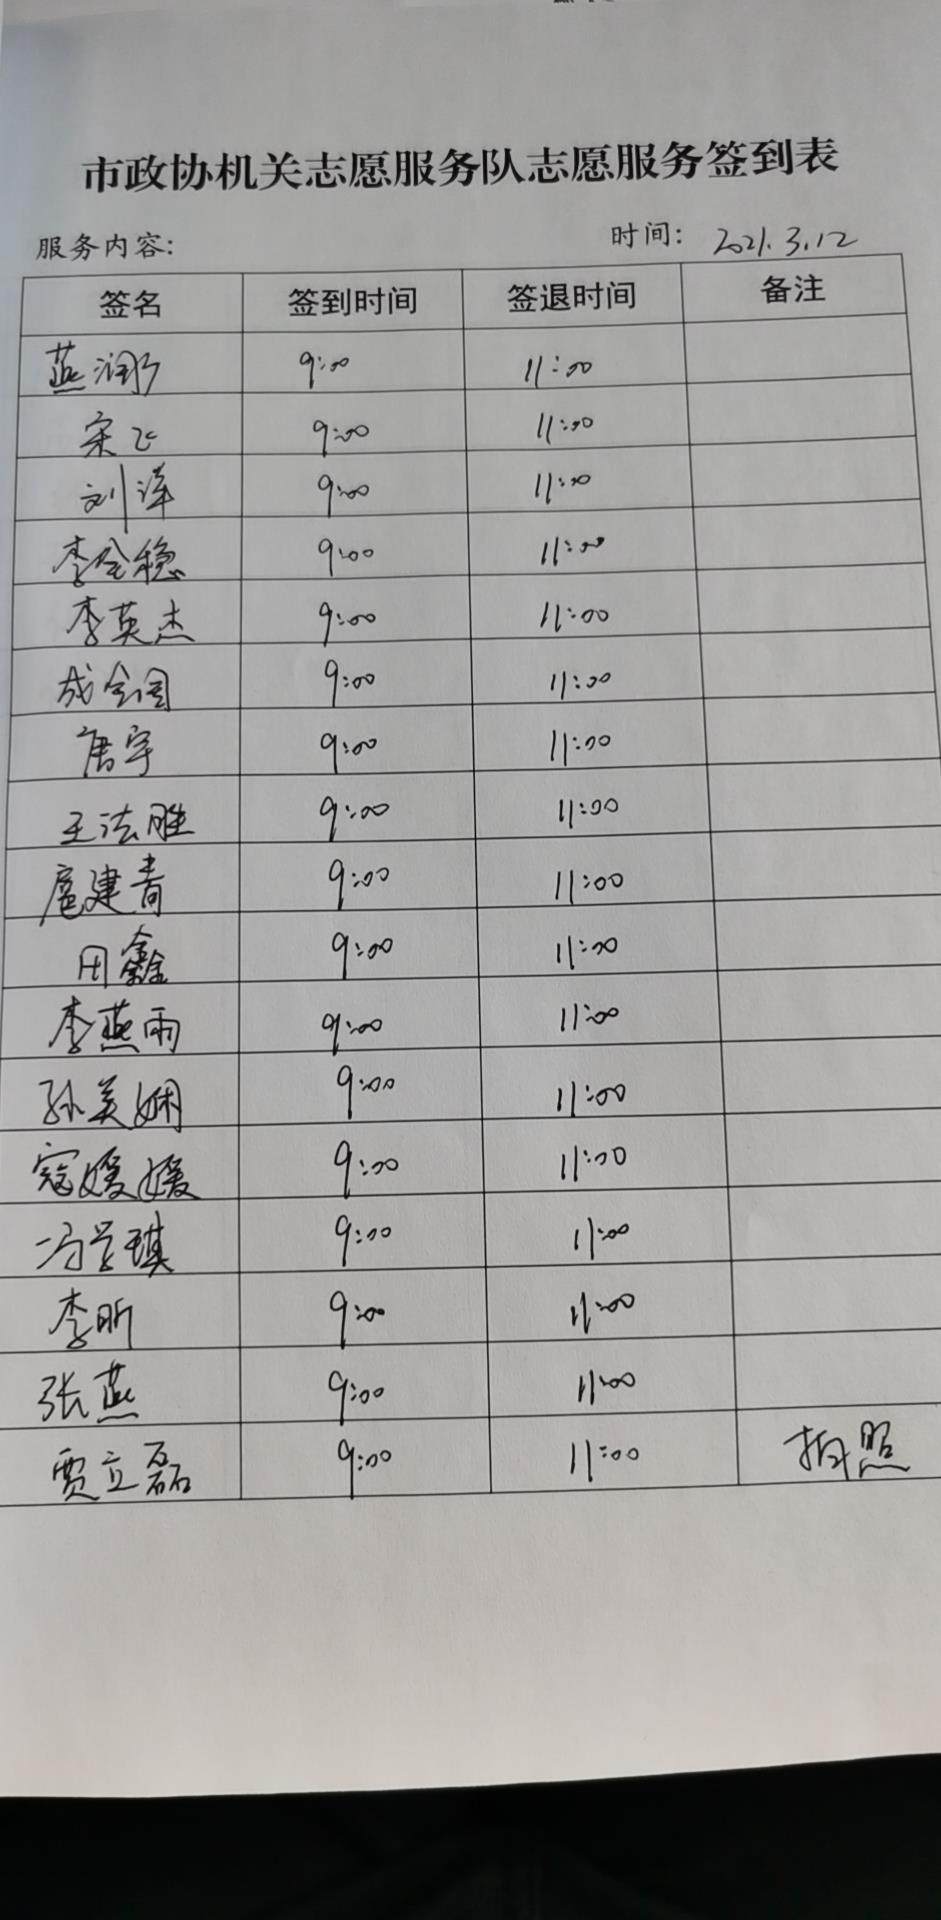 市政协机关志愿服务队志愿服务签到表
服务内容: 时间: 2021.3.12
签名 签到时间 签退时间 备注
燕润 9:00 11:00
宋飞 9:00 11:00
刘洋 9:00 11:00
李全稳 9:00 11:00
李英杰 9:00 11:00
成全国 9:00 11:00
唐宇 9:00 11:00
王法胜 9:00 11:00
扈建青 9:00 11:00
田鑫 9:00 11:00
李燕雨 9:00 11:00
孙美娴 9:00 11:00
寇媛媛 9:00 11:00
冯琪 9:00 11:00
李昕 9:00 11:00
张燕 9:00 11:00
贾立磊 9:00 11:00 拍照